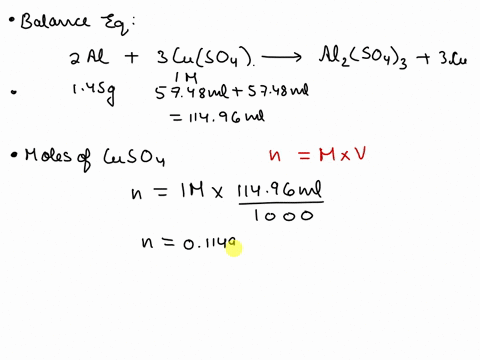 • Balance Eq:
2Al + 3Cu(SO4). ⟶ Al2(SO4)3 + 3Cu
1M
• 1.45g 57.48ml + 57.48ml
= 114.96ml
• Moles of CuSO4 n = M×V
n = 1M × 114.96ml
1000
n = 0.1149